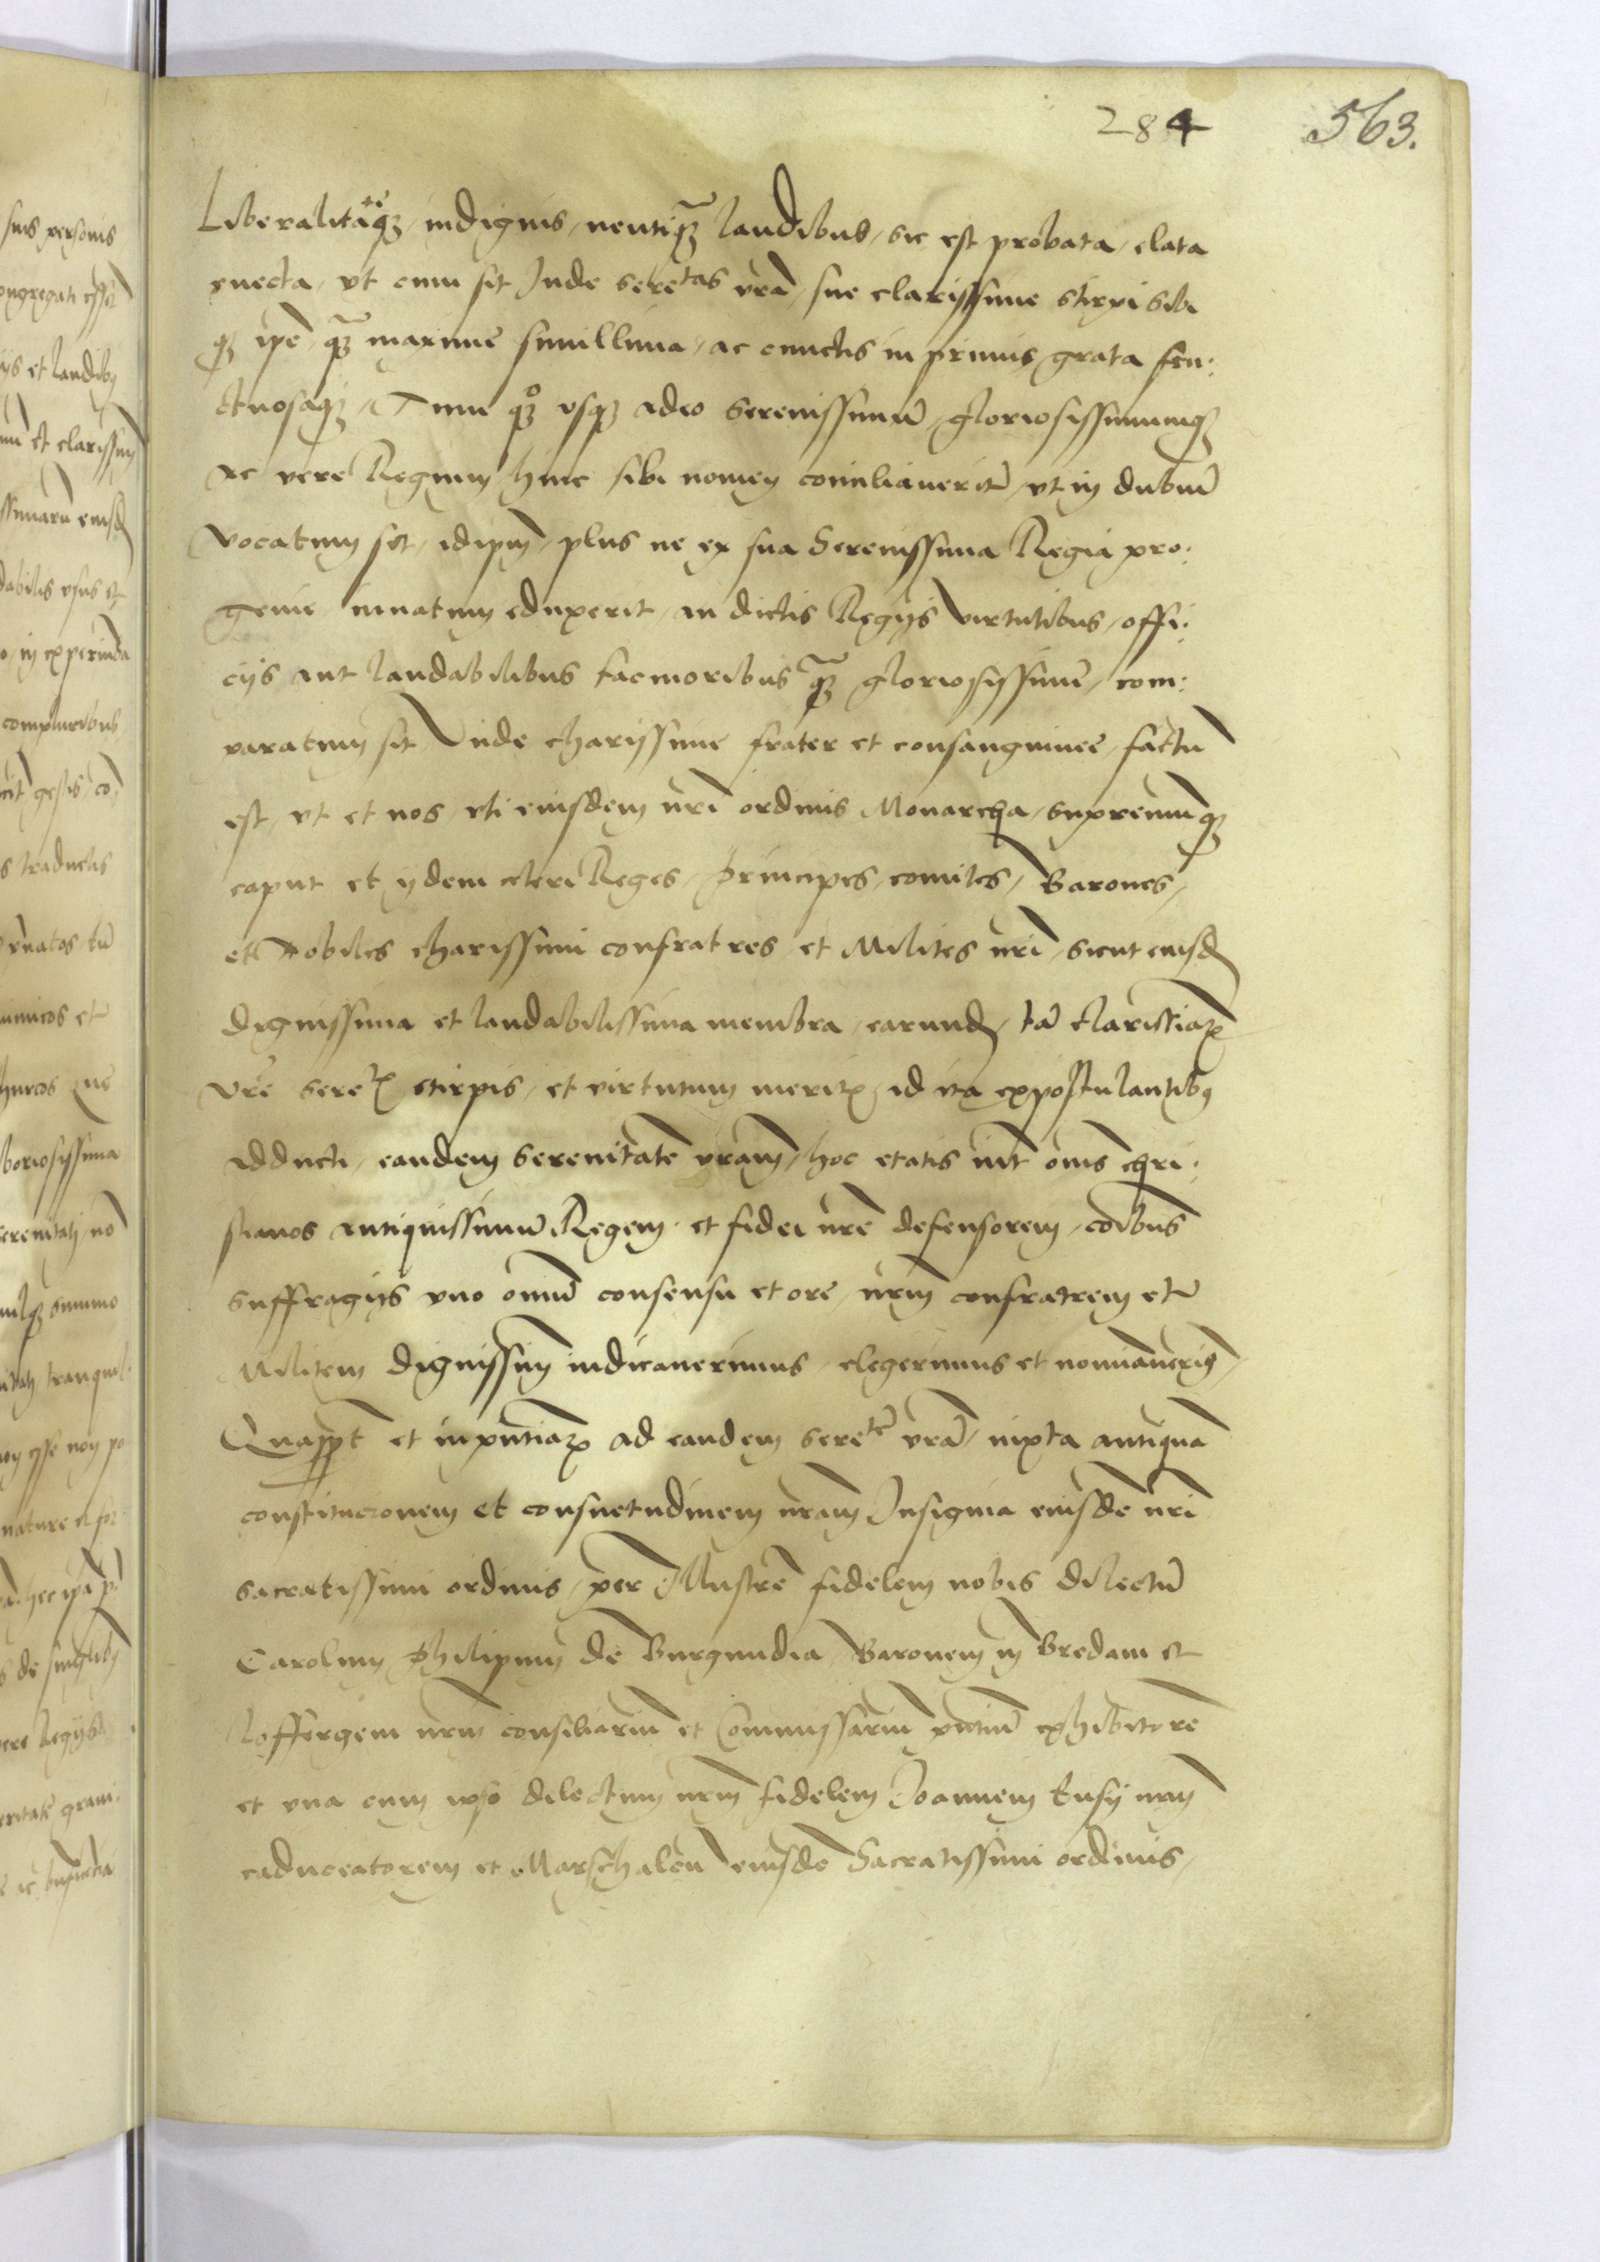 284 563.
Liberalitateq; indignis, neutiq̃ laudibus, sic est probata, elata
euecta, vt cum sit Inde sere^tas vrã, sue clarissime stirpi sibi
q; ipē, q̃ maxime simillima, ac cunctis in primis grata fru:
ctuosaq;, Tum q^o vsq; adeo serenissimū, gloriosissimumq;
ac vere Regium hinc sibi nomen conciliauerit, vt in dubiū
vocatum sit, idipm̄, plus ne ex sua Serenissima Regia pro:
genie innatum eduxerit, an dictis Regijs virtutibus, offi:
cijs aut laudabilibus facinoribus q̃ gloriosissimē, com:
paratum sit, Vnde charissime frater et consanguinee, factū
est, vt et nos, vti eiusdem nr̄i ordinis Monarcha, supremūq;
caput et ijdem ceteri Reges, Principes, comites, Barones,
et Nobiles charissimi confratres et Milites nr̄i, sicut eiusd
dignissima et laudabilissima membra, earund, tā clarissiaꝝ
Vrē sereꝝ stirpis, et virtutum meritꝝ id ita expostulantibq
adducti, eandem serenitatē vram̄, hoc etatis int̄ om̄s chri:
stianos antiquissimū Regem, et fidei nr̄e defensorem, cōibus
suffragijs vno om̄iū consensu et ore, nr̄m confratrem et
Militem dignissim̄ iudicauerimus, elegerimus et nominauerim̄,
Quappt̄ et inpn̄tiaꝝ ad eandem sere^te vrā, iuxta antiquā
constitucionem et consuetudinem nr̄am Insignia eiusdē nr̄i
sacratissimi ordinis, per Illustrē fidelem nobis dilectū
Carolum Philipum de Burgundia Baronem in Bredam et
loffergem nr̄m consiliariū et Commissariū pn̄tiū exhibitorē
et vna cum ipso dilectum nr̄m fidelem Joannem
caduceatorem et Marschalcū eiusdē Sacratissimi ordinis,